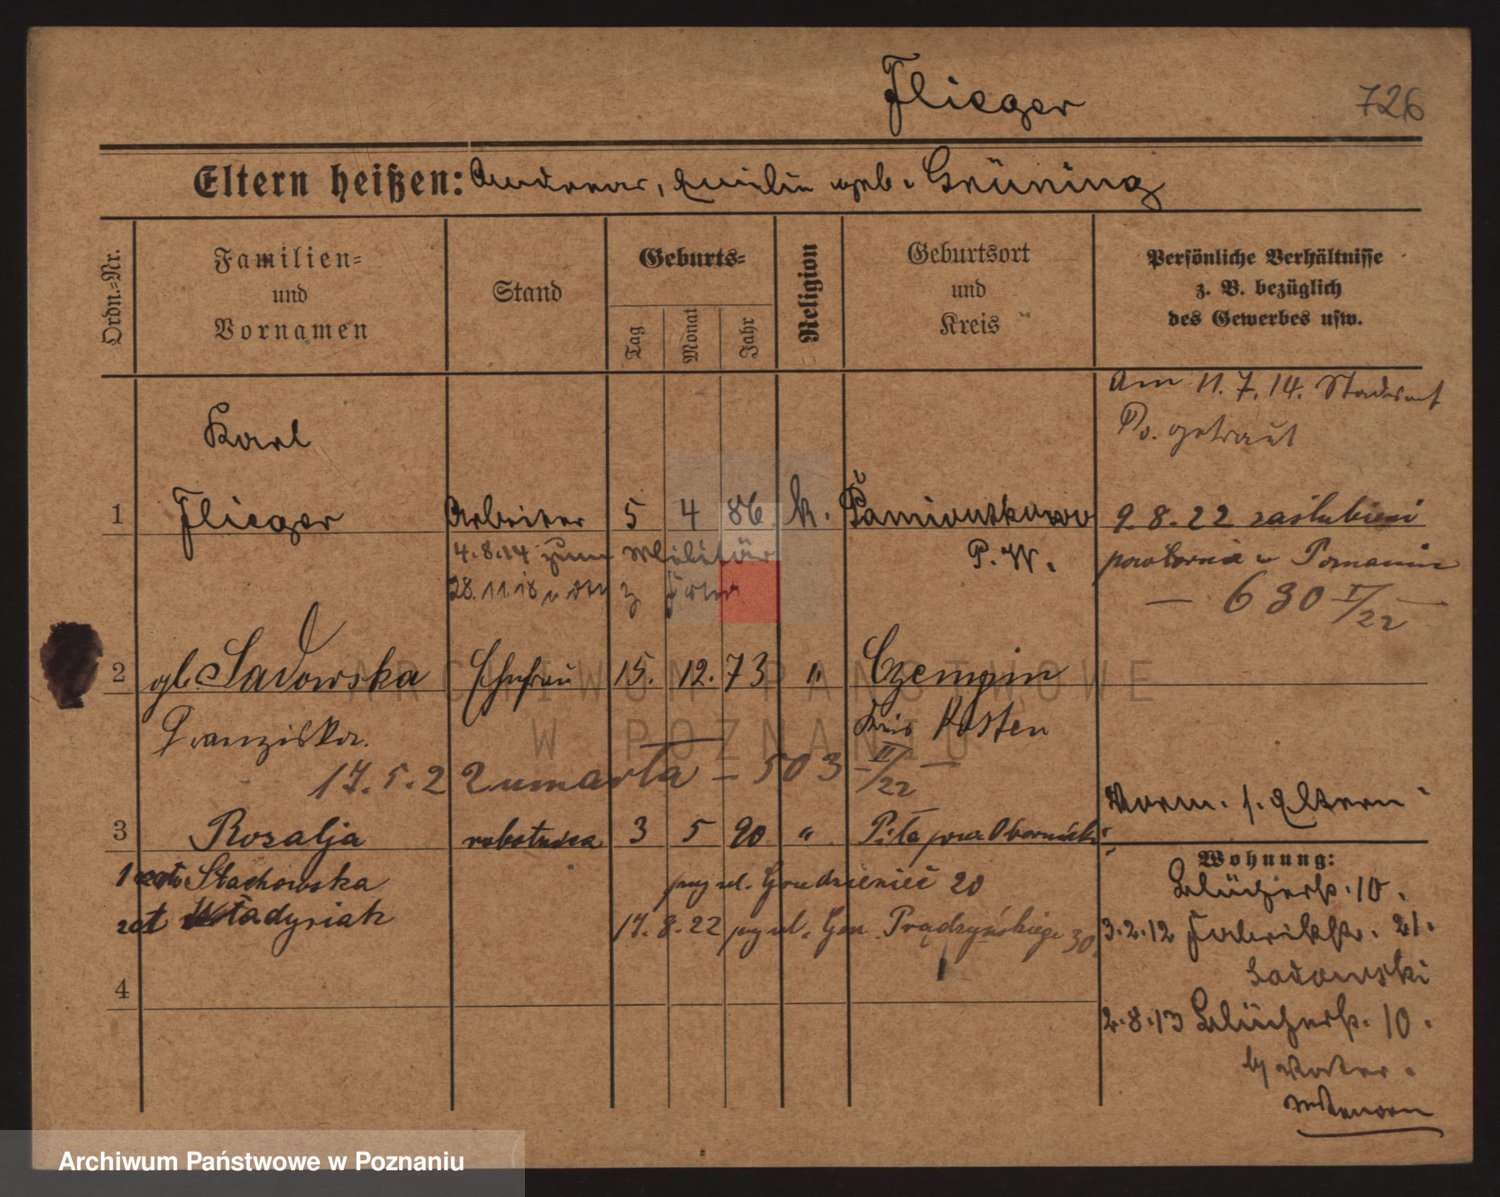 Flieger
726
Eltern heißen: Andreas, Emilie geb. Grüning
Ordn.-Nr.
Familien-
und
Vornamen
Stand
Geburts-
Tag
Monat
Jahr
Religion
Geburtsort
und
Kreis
Persönliche Verhältnisse
z. B. bezüglich
des Gewerbes usw.
Am 11.7.14. Standesamt
Po. getraut
Karl
1 Flieger Arbeiter 5 4 86 k. Pamiontkowo
P. W.
4.8.14 zum Militär
28.11.18 z
9 8.22 zaślubieni
powtórnie w Poznaniu
— 630 I/22 —
2 gb. Sadowska Ehefrau 15. 12. 73 " Czempin
Franziska.
Kreis Kosten
17.5.22 umarła — 503 II/22 —
3 Rozalja robotnica 3 5 90 " Piła pow. Obornicki
1 voto Stachowska
2 vot Władysiak
przy ul. Grudzieniec 20
17.8.22 przy ul. Gen. Prądzyńskiego 30.
4
Vorm. s. Eltern
Wohnung:
Blücherstr. 10.
3.2.12 Fabrikstr. 21.
Sadowski
2.8.13 Blücherstr. 10.
b/ Vater.
ARCHIWUM PAŃSTWOWE
W POZNANIU
Archiwum Państwowe w Poznaniu